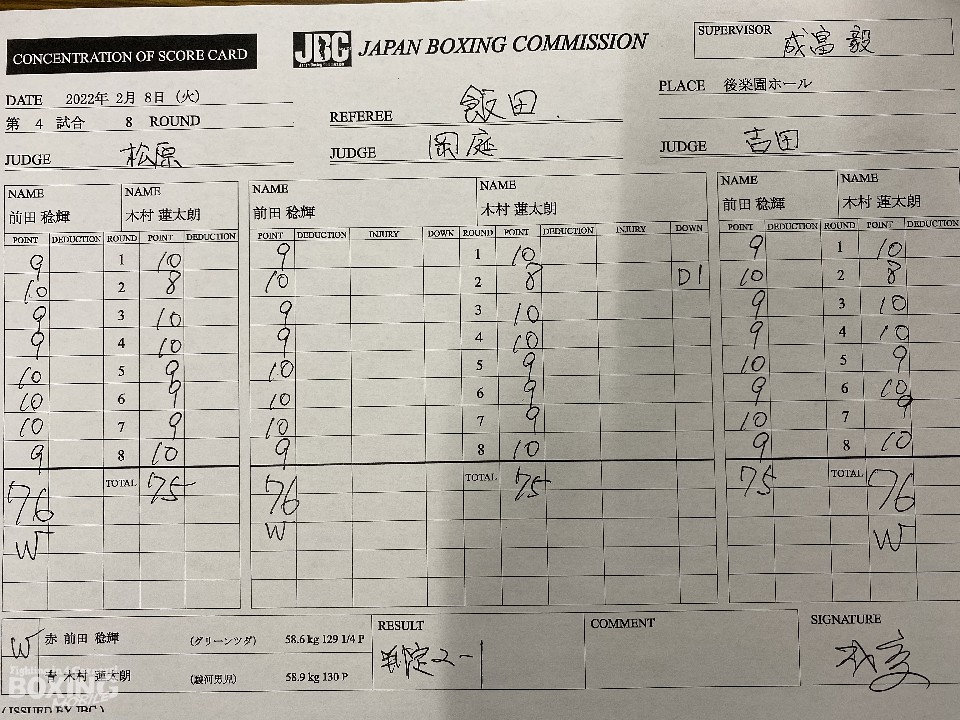 CONCENTRATION OF SCORE CARD
JBC JAPAN BOXING COMMISSION
SUPERVISOR 成富 毅
DATE 2022年 2月 8日 (火)
REFEREE 飯田
PLACE 後楽園ホール
第 4 試合 8 ROUND
JUDGE 松原
JUDGE 岡庭
JUDGE 吉田
NAME NAME NAME NAME NAME NAME
前田 稔輝 木村 蓮太朗 前田 稔輝 木村 蓮太朗 前田 稔輝 木村 蓮太朗
POINT DEDUCTION ROUND POINT DEDUCTION POINT DEDUCTION INJURY DOWN ROUND POINT DEDUCTION INJURY DOWN POINT DEDUCTION ROUND POINT DEDUCTION
9 1 10 9 1 10 9 1 10
10 2 8 10 2 8 D1 10 2 8
9 3 10 9 3 10 9 3 10
9 4 10 9 4 10 9 4 10
10 5 9 10 5 9 10 5 9
10 6 9 10 6 9 9 6 10
10 7 9 10 7 9 10 7 9
9 8 10 9 8 10 9 8 10
76 TOTAL 75 76 TOTAL 75 75 TOTAL 76
W W W
W 赤 前田 稔輝 (グリーンツダ) 58.6 kg 129 1/4 P
青 木村 蓮太朗 (駿河男児) 58.9 kg 130 P
RESULT
判定2-1
COMMENT
SIGNATURE
BOXING
(ISSUED BY JBC)